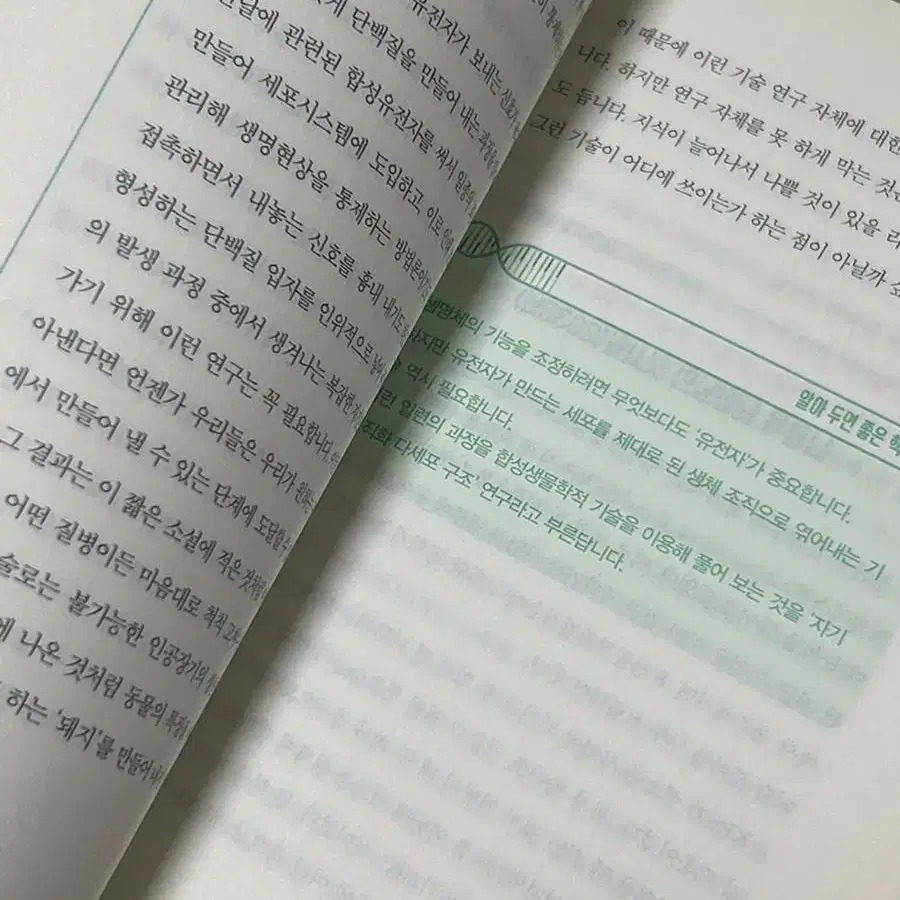 유전자가 보내는 신호
단백질을 만들어 내는 과정
전달에 관련된 합성유전자를 써서 일종의
만들어 세포시스템에 도입하고, 이로 인해
관리해 생명현상을 통제하는 방법론
접촉하면서 내놓는 신호를 흉내 내기도
형성하는 단백질 입자를 인위적으로
의 발생 과정 중에서 생겨나는 복잡한
가기 위해 이런 연구는 꼭 필요합니다.
아낸다면 언젠가 우리들은 우리가 원하는
에서 만들어 낼 수 있는 단계에 도달할 수
그 결과는 이 짧은 소설에 적은 것처럼
어떤 질병이든 마음대로 척척
술로는 불가능한 인공장기의
에 나온 것처럼 동물의 특징을
하는 '돼지'를 만들어
이 때문에 이런 기술 연구 자체에 대한
니다. 하지만 연구 자체를 못 하게 막는 것은
도 듭니다. 지식이 늘어나서 나쁠 것이 있을 리
그런 기술이 어디에 쓰이는가 하는 점이 아닐까
알아 두면 좋은
생명체의 기능을 조정하려면 무엇보다도 '유전자'가 중요합니다.
하지만 유전자가 만드는 세포를 제대로 된 생체 조직으로 엮어내는 기
역시 필요합니다.
일련의 과정을 합성생물학적 기술을 이용해 풀어 보는 것을 '자기
조직화 다세포 구조' 연구라고 부른답니다.